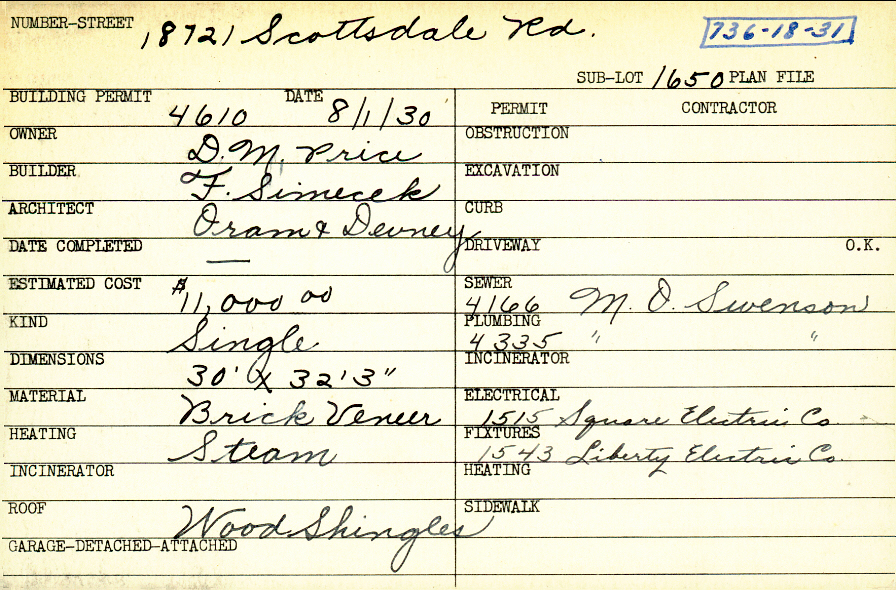 NUMBER-STREET 18721 Scottsdale Rd. 736-18-31
SUB-LOT 1650 PLAN FILE
BUILDING PERMIT 4610 DATE 8/1/30
OWNER D. M. Price
BUILDER F. Simecek
ARCHITECT Oram & Devney
DATE COMPLETED —
ESTIMATED COST $11,000 00
KIND Single
DIMENSIONS 30' X 32'3"
MATERIAL Brick Veneer
HEATING Steam
INCINERATOR
ROOF Wood Shingles
GARAGE-DETACHED-ATTACHED
PERMIT CONTRACTOR
OBSTRUCTION
EXCAVATION
CURB
DRIVEWAY O.K.
SEWER 4166 M. O. Swenson
PLUMBING 4335 " "
INCINERATOR
ELECTRICAL 1515 Square Electric Co.
FIXTURES 1543 Liberty Electric Co.
HEATING
SIDEWALK